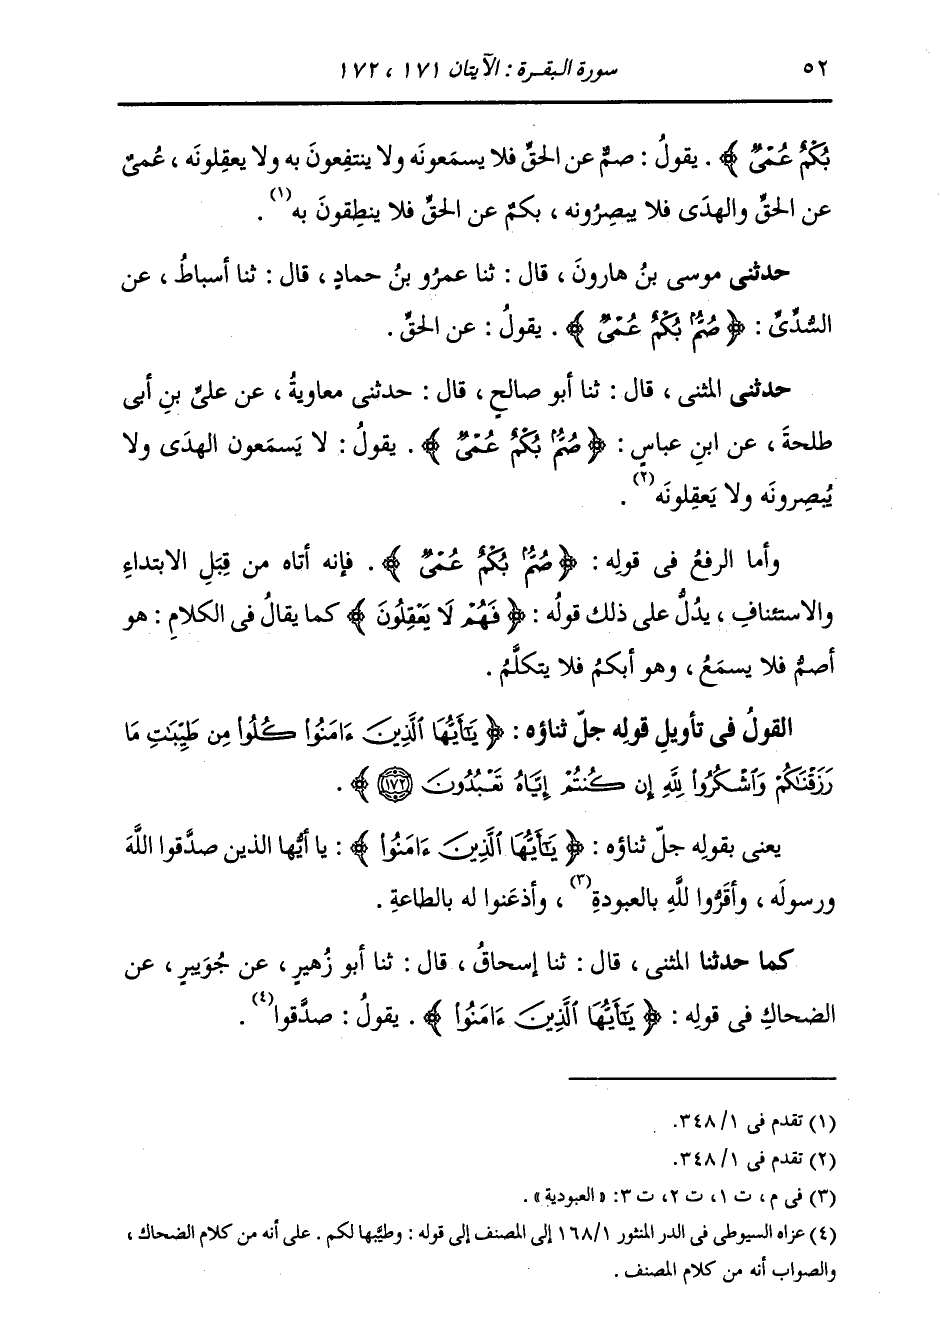 ٥٢ سورة البقرة : الآيتان ١٧١ ، ١٧٢
بُكْمٌ عُمْىٌ ﴾ . يقولُ : صمٌّ عن الحقِّ فلا يسمَعونَه ولا ينتفِعونَ به ولا يعقِلونَه ، عُمىٌ
عن الحقِّ والهدَى فلا يبصِرُونه ، بكمٌ عن الحقِّ فلا ينطِقونَ به(١) .
حدثنى موسى بنُ هارونَ ، قال : ثنا عمرُو بنُ حمادٍ ، قال : ثنا أسباطُ ، عن
السُّدِّىِّ : ﴿ صُمٌّ بُكْمٌ عُمْىٌ ﴾ . يقولُ : عن الحقِّ .
حدثنى المثنى ، قال : ثنا أبو صالحٍ ، قال : حدثنى معاويةُ ، عن علىِّ بنِ أبى
طلحةَ ، عن ابنِ عباسٍ : ﴿ صُمٌّ بُكْمٌ عُمْىٌ ﴾ . يقولُ : لا يَسمَعون الهدَى ولا
يُبصِرونَه ولا يَعقِلونَه(٢) .
وأما الرفعُ فى قولِه : ﴿ صُمٌّ بُكْمٌ عُمْىٌ ﴾ . فإنه أتاه من قِبَلِ الابتداءِ
والاستئنافِ ، يدُلُّ على ذلك قولُه : ﴿ فَهُمْ لَا يَعْقِلُونَ ﴾ كما يقالُ فى الكلامِ : هو
أصمُّ فلا يسمَعُ ، وهو أبكمُ فلا يتكلَّمُ .
القولُ فى تأويلِ قولِه جلّ ثناؤه : ﴿ يَٰٓأَيُّهَا ٱلَّذِينَ ءَامَنُوا۟ كُلُوا۟ مِن طَيِّبَٰتِ مَا
رَزَقْنَٰكُمْ وَٱشْكُرُوا۟ لِلَّهِ إِن كُنتُمْ إِيَّاهُ تَعْبُدُونَ ١٧٢ ﴾ .
يعنى بقولِه جلّ ثناؤه : ﴿ يَٰٓأَيُّهَا ٱلَّذِينَ ءَامَنُوا۟ ﴾ : يا أيُّها الذين صدَّقوا اللَّهَ
ورسولَه ، وأقَرُّوا للَّهِ بالعبودةِ(٣) ، وأذعَنوا له بالطاعةِ .
كما حدثنا المثنى ، قال : ثنا إسحاقُ ، قال : ثنا أبو زُهيرٍ ، عن جُوَيبرٍ ، عن
الضحاكِ فى قولِه : ﴿ يَٰٓأَيُّهَا ٱلَّذِينَ ءَامَنُوا۟ ﴾ . يقولُ : صدَّقوا(٤) .
(١) تقدم فى ٣٤٨/١.
(٢) تقدم فى ٣٤٨/١.
(٣) فى م، ت ١، ت ٢، ت ٣: « العبودية » .
(٤) عزاه السيوطى فى الدر المنثور ١٦٨/١ إلى المصنف إلى قوله : وطيَّبها لكم . على أنه من كلام الضحاك ،
والصواب أنه من كلام المصنف .